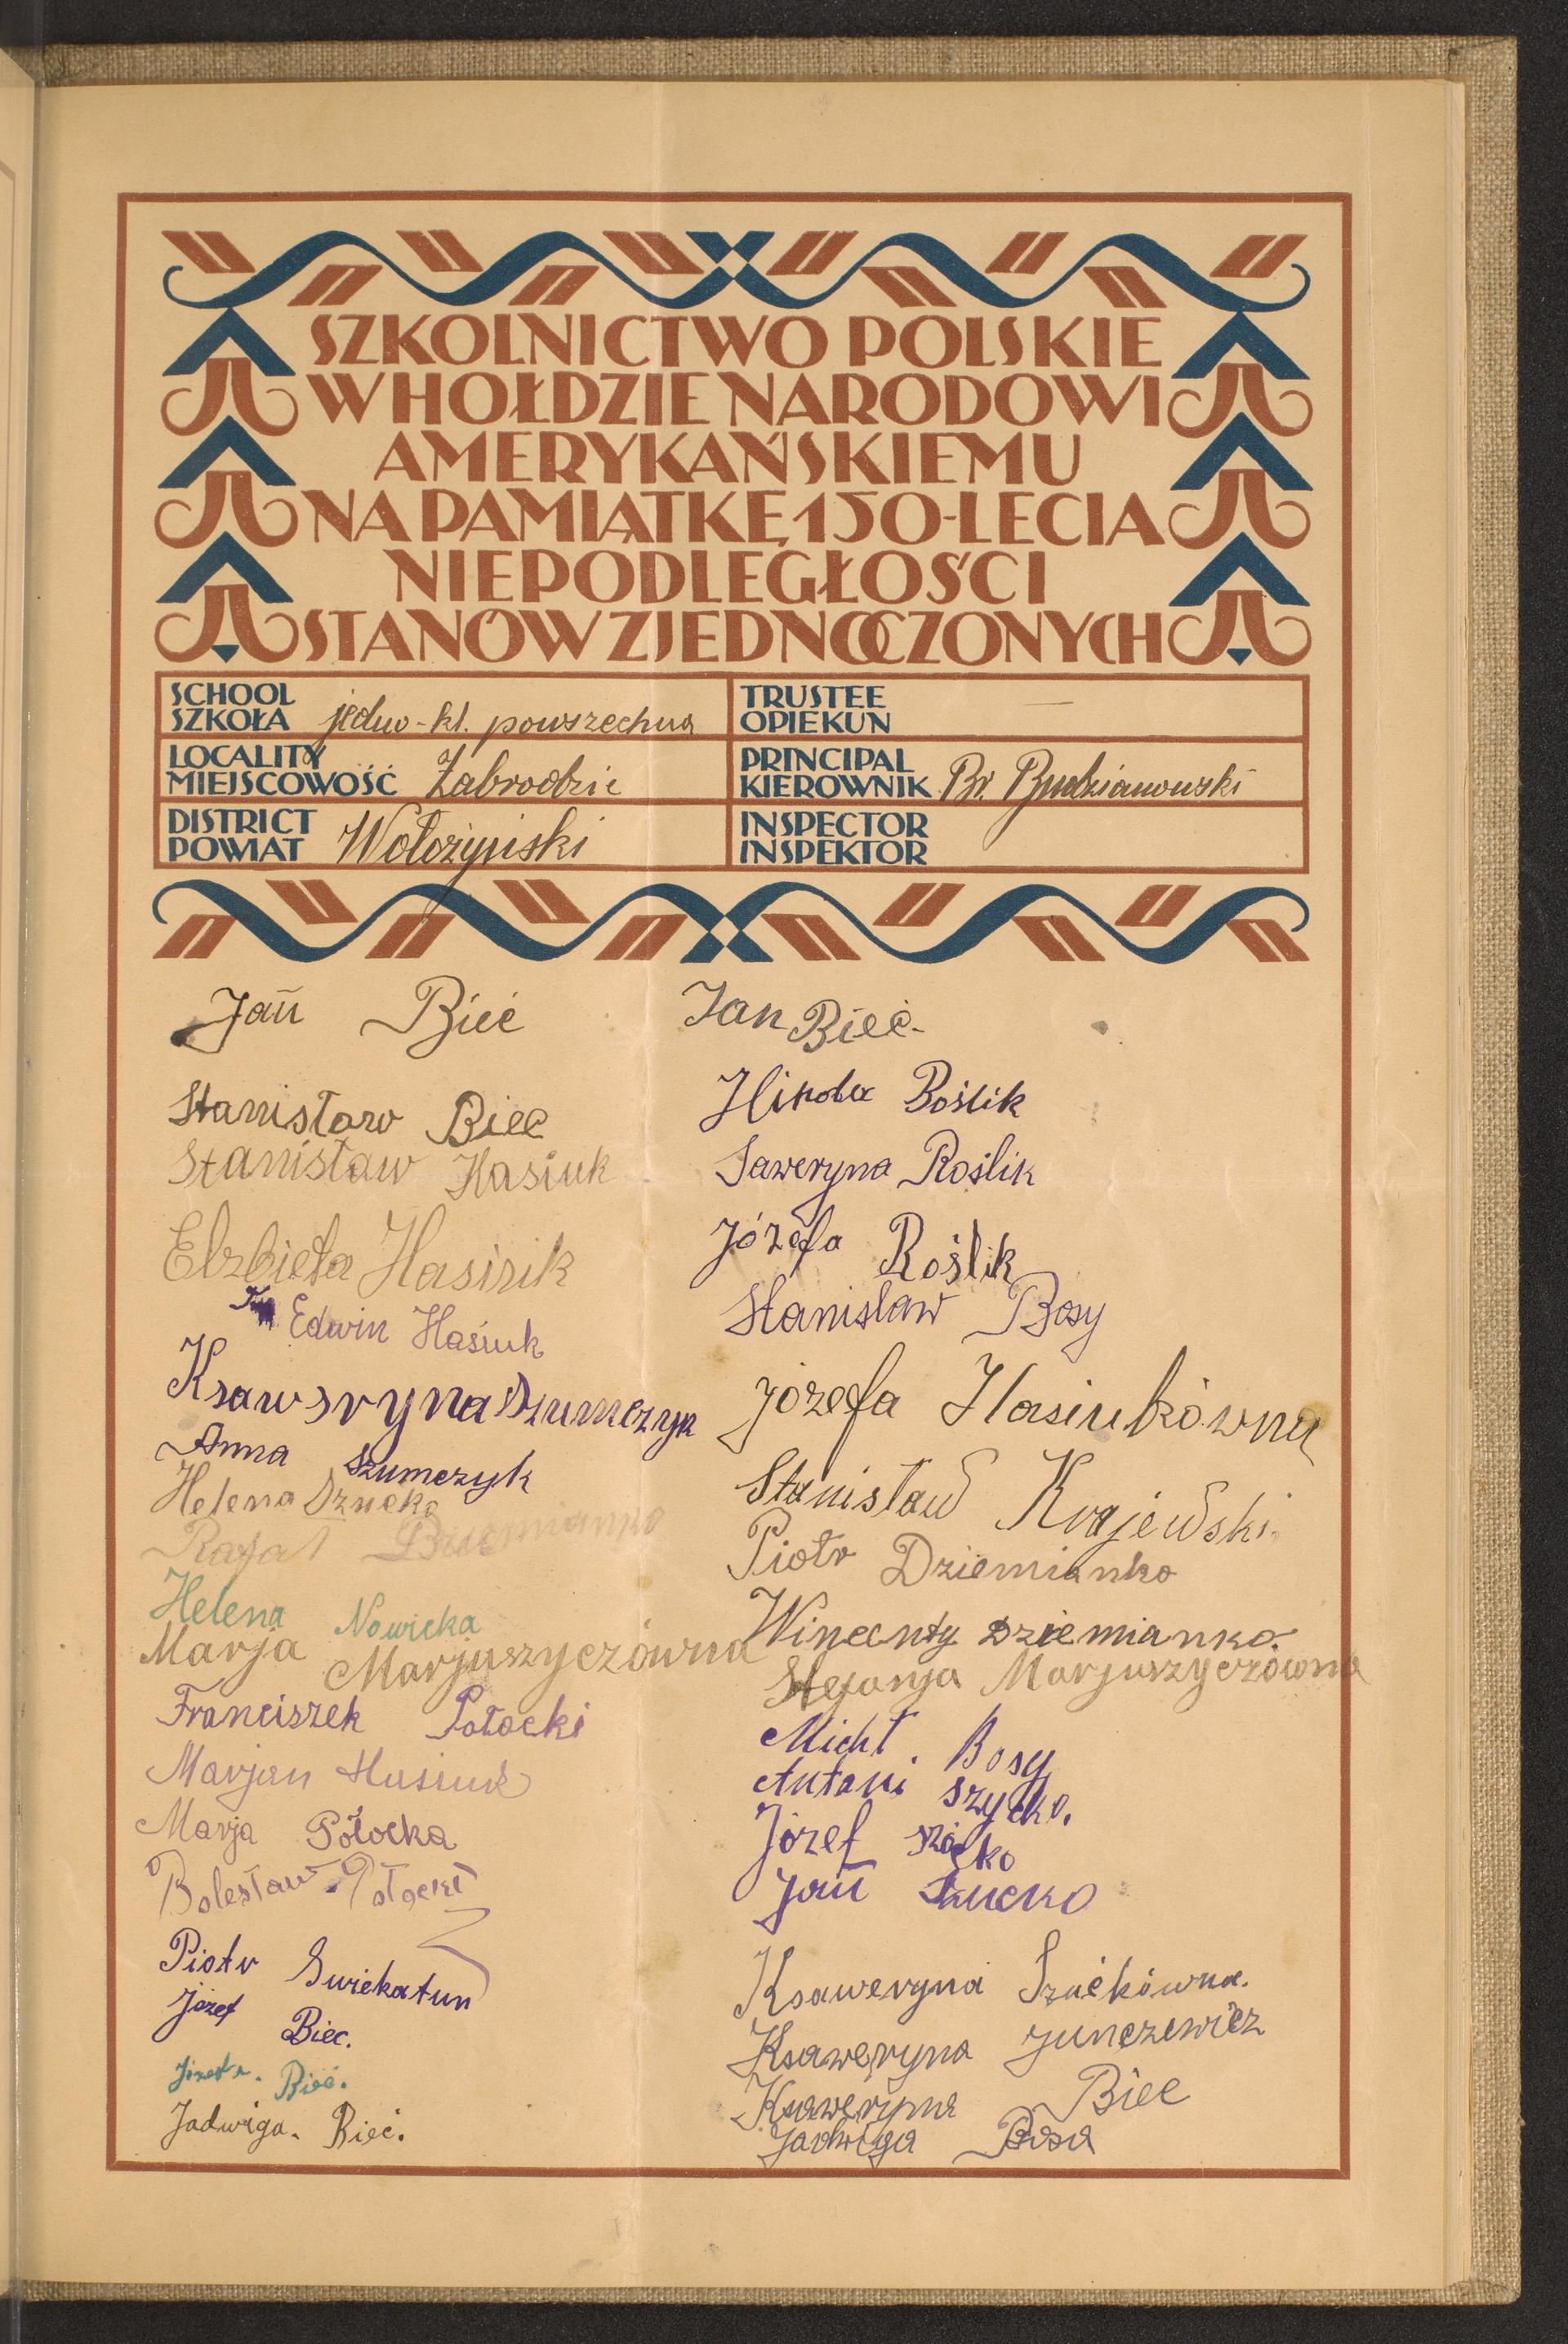 SZKOLNICTWO POLSKIE
W HOŁDZIE NARODOWI
AMERYKAŃSKIEMU
NA PAMIĄTKĘ 150-LECIA
NIEPODLEGŁOŚCI
STANÓW ZJEDNOCZONYCH
SCHOOL
SZKOŁA jedno-kl. powszechna
TRUSTEE
OPIEKUN —
LOCALITY
MIEJSCOWOŚĆ Zabrodzie
PRINCIPAL
KIEROWNIK Br. Budzianowski
DISTRICT
POWIAT Wołożyński
INSPECTOR
INSPEKTOR
Jan Bieć
Stanisław Bieć
Stanisław Hasiuk
Elzbieta Hasiuk
Edwin Hasiuk
Ksaweryna Szumczyk
Anna Szumczyk
Helena Szućko
Rafał Dziemianko
Helena Nowicka
Marja Marjuszyczówna
Franciszek Połocki
Marjan Hasiuk
Marja Połocka
Bolesław Połocki
Piotr Swiekatun
Józef Biec.
Bieć.
Jadwiga. Bieć.
Jan Bieć.
Roślik
Saweryna Roślik
Józefa Roślik
Stanisław Bosy
Józefa Hasiukówna
Stanisław Krajewski.
Piotr Dziemianko
Wincenty Dziemianko.
Stefanja Marjuszyczówna
Michł. Bosy
Antoni Szyćko.
Józef
Jan Szucko
Ksaweryna Szućkówna.
Ksaweryna Junczewicz
Ksaweryna Biec
Jadwiga Bosa